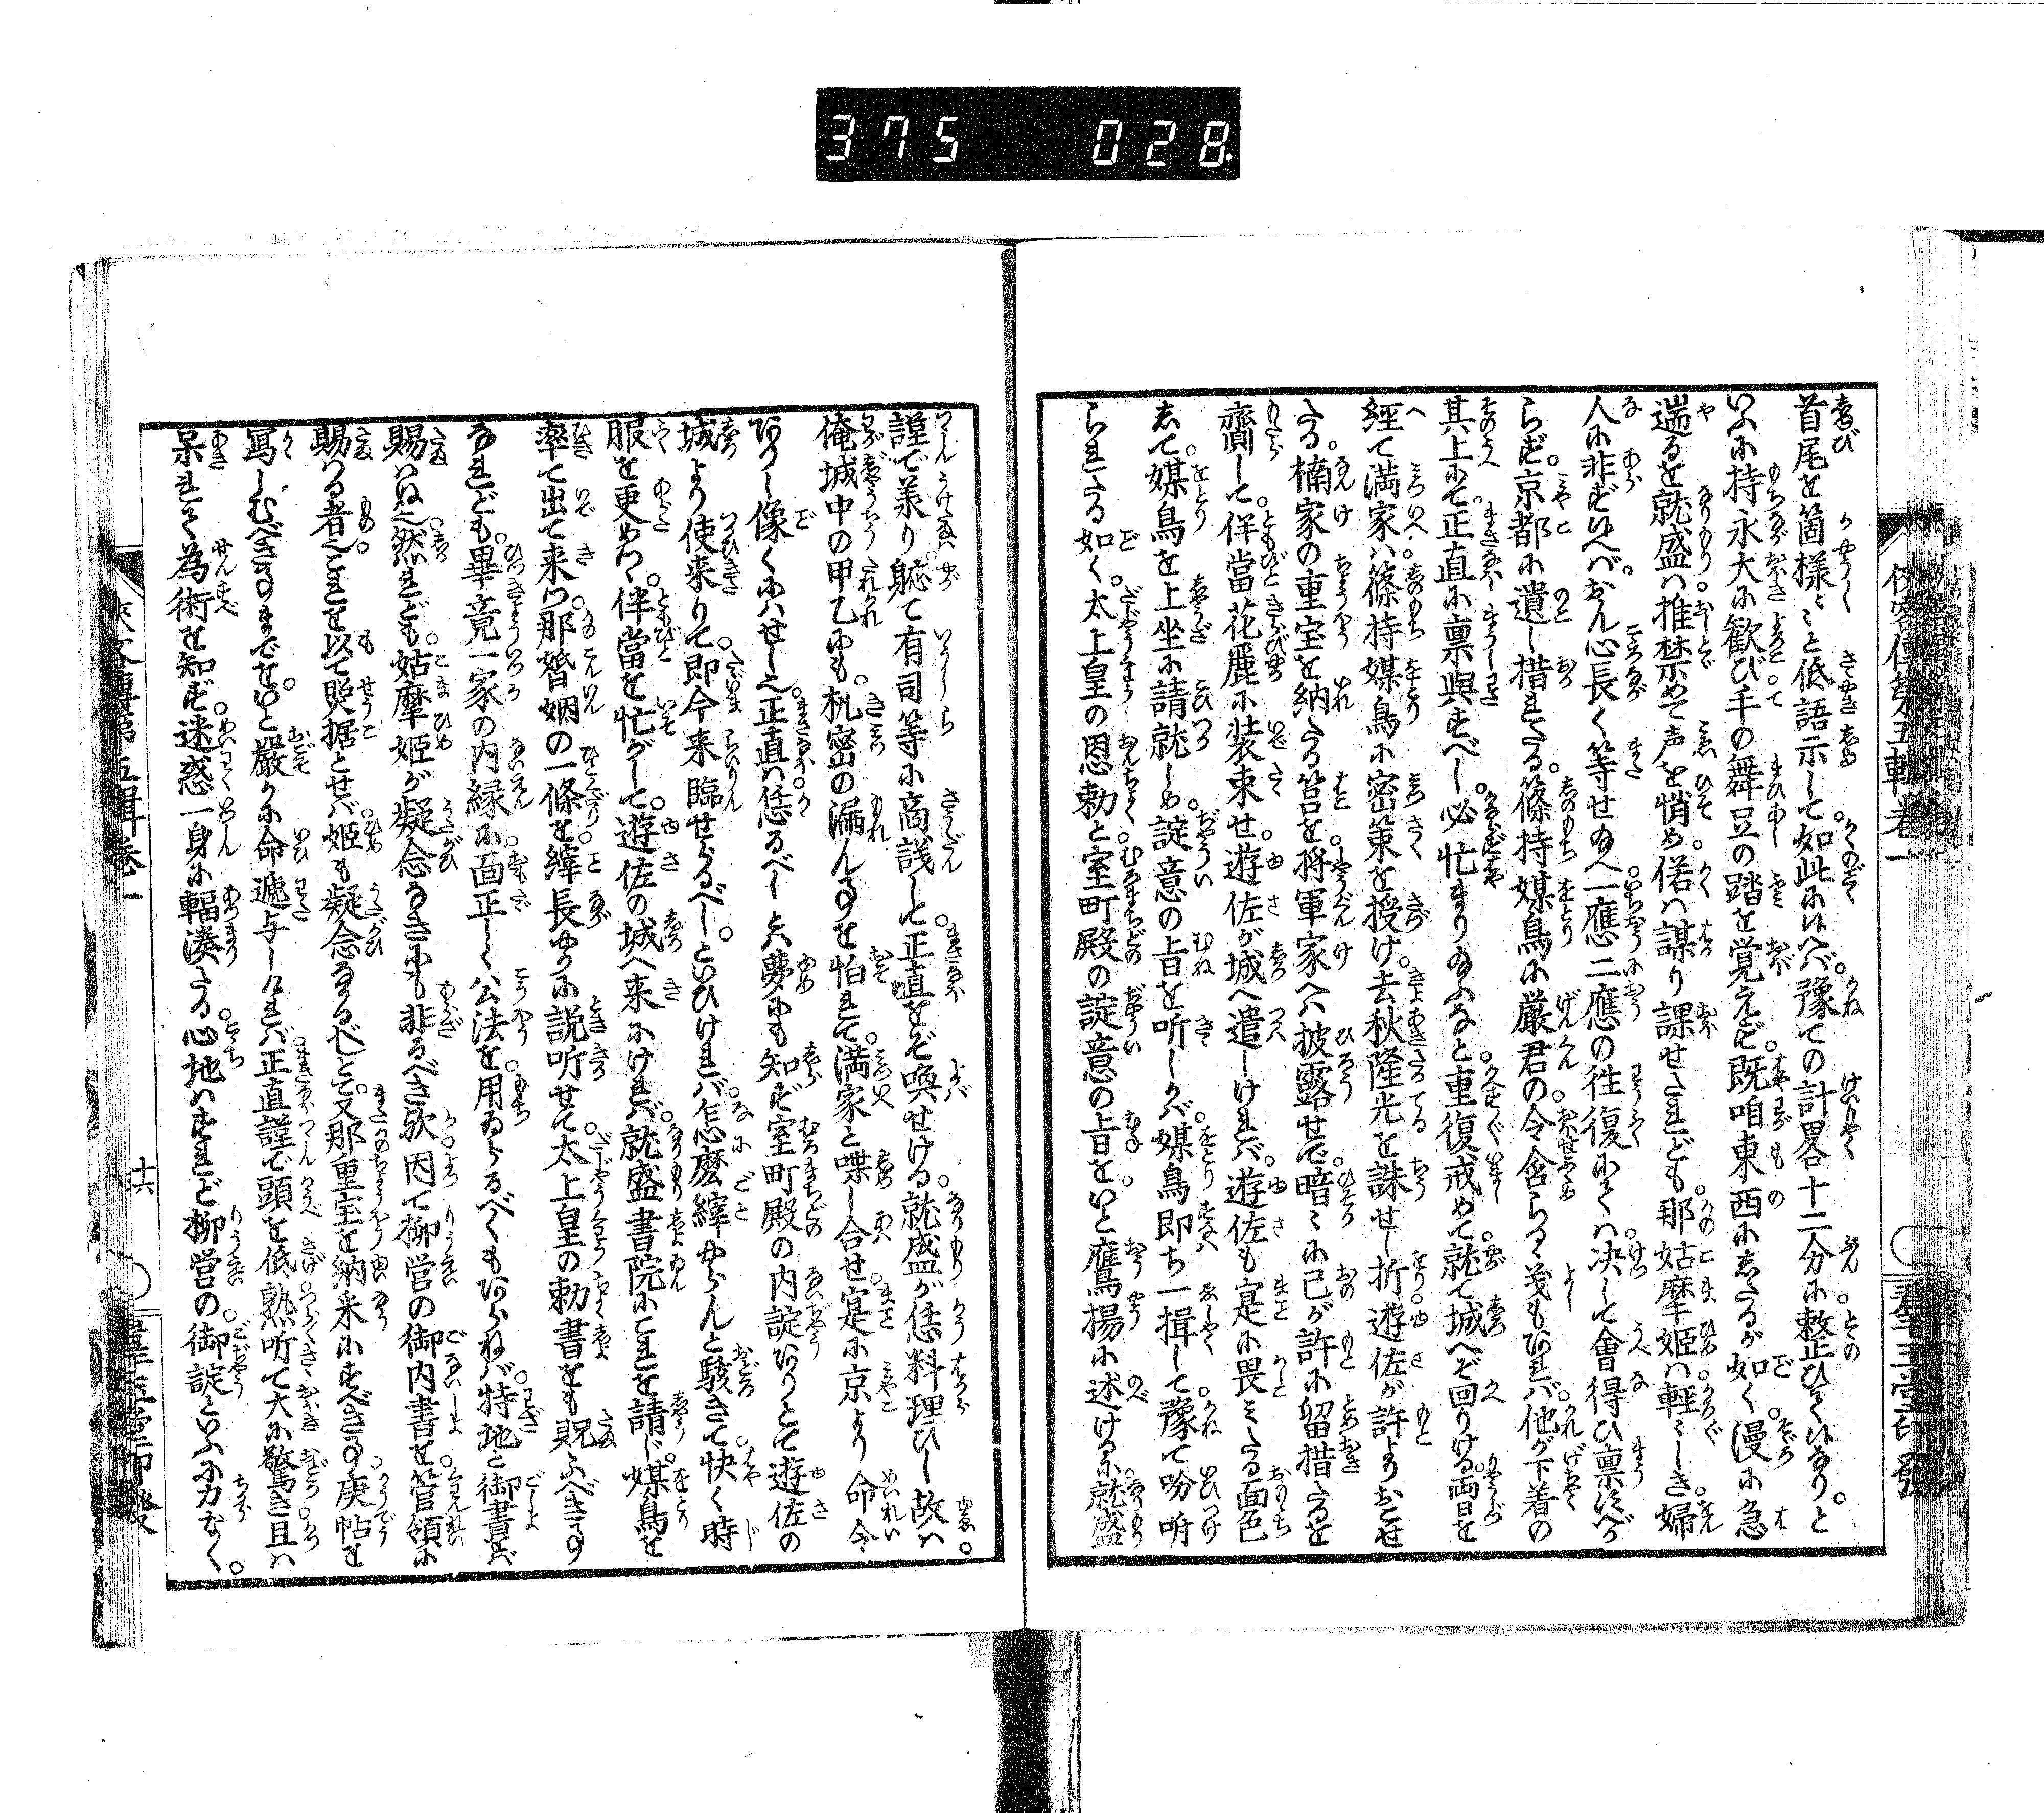 375 028
首尾を箇様〻と低語示して如此いへバ豫ての計畧十二分に整ひてい なりと
いふに持永大に歓び手の舞足の踏を覚えず既咱東西にしたるが如く漫に急
遄るを就盛ハ推禁めて声を悄め偌ハ謀り課せたれども那姑摩姫ハ軽〻しき婦
人に非ずいへバおん心長く等せ給へ一應二應の徃復にてハ决して會得ひ稟べから
らず京都に遺し措れたる篠持媒鳥に厳君の令含らるゝ義もあれバ他が下着の
其上にて正直に稟與すべし必忙まり給ふなと重復戒めて就て城へぞ回りける両日を
經て満家ハ篠持媒鳥に密策を授け去秋隆光を誅せし折遊佐が許よりおこせ
たる楠家の重宝を納たる筥を将軍家へハ披露せで暗〻に己が許に留措たるを
齎して伴當花麗に装束せ遊佐が城へ遣しけれバ遊佐も寔に畏みたる面色
して媒鳥を上坐に請就しめ諚意の旨を听しかバ媒鳥即ち一揖して豫て吩咐
られたる如く太上皇の恩勅と室町殿の諚意の旨をいと鷹揚に述けるに就盛
謹で美り軈て有司等に商議しと正直をぞ喚せける就盛が恁料理ひし故ハ
俺城中の甲乙にも机密の漏んことを怕れて満家と喋し合せ寔に京より命令
ありし像くにハせしなり正直ハ恁るべしとハ夢にも知ず室町殿の内諚ありとて遊佐の
城より使来りて即今来臨せらるべしといひけれバ怎麽縡やらんと駭きて快く時
服を更めつゝ伴當を忙がして遊佐の城へ来にけれバ就盛書院にこれを請じ媒鳥を
率て出て来つ那婚姻の一條を縡長やかに説听せて太上皇の勅書をも貺ふべきこと
なれども畢竟一家の内縁に面正しく公法を用ゐらるべくもあらねバ特地と御書をバ
賜ハね然れども姑摩姫が疑念なきにも非るべき歟因て柳営の御内書を管領に
賜ハる者これを以て照据とせバ姫も疑念なかるべしとて又那重宝を納采にすべきこと庚帖を
寫しむべきことまでをいと嚴かに命遞与しけれバ正直謹で頭を低熟听て大に驚き且ハ
呆れて為術を知ず迷惑一身に輻湊たる心地ハすれど柳営の御諚といふに力なく
侠客傳第五輯巻一
十六
羣玉堂印發